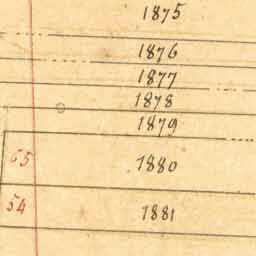 1875
1876
1877
1878
1879
65 1880
54 1881